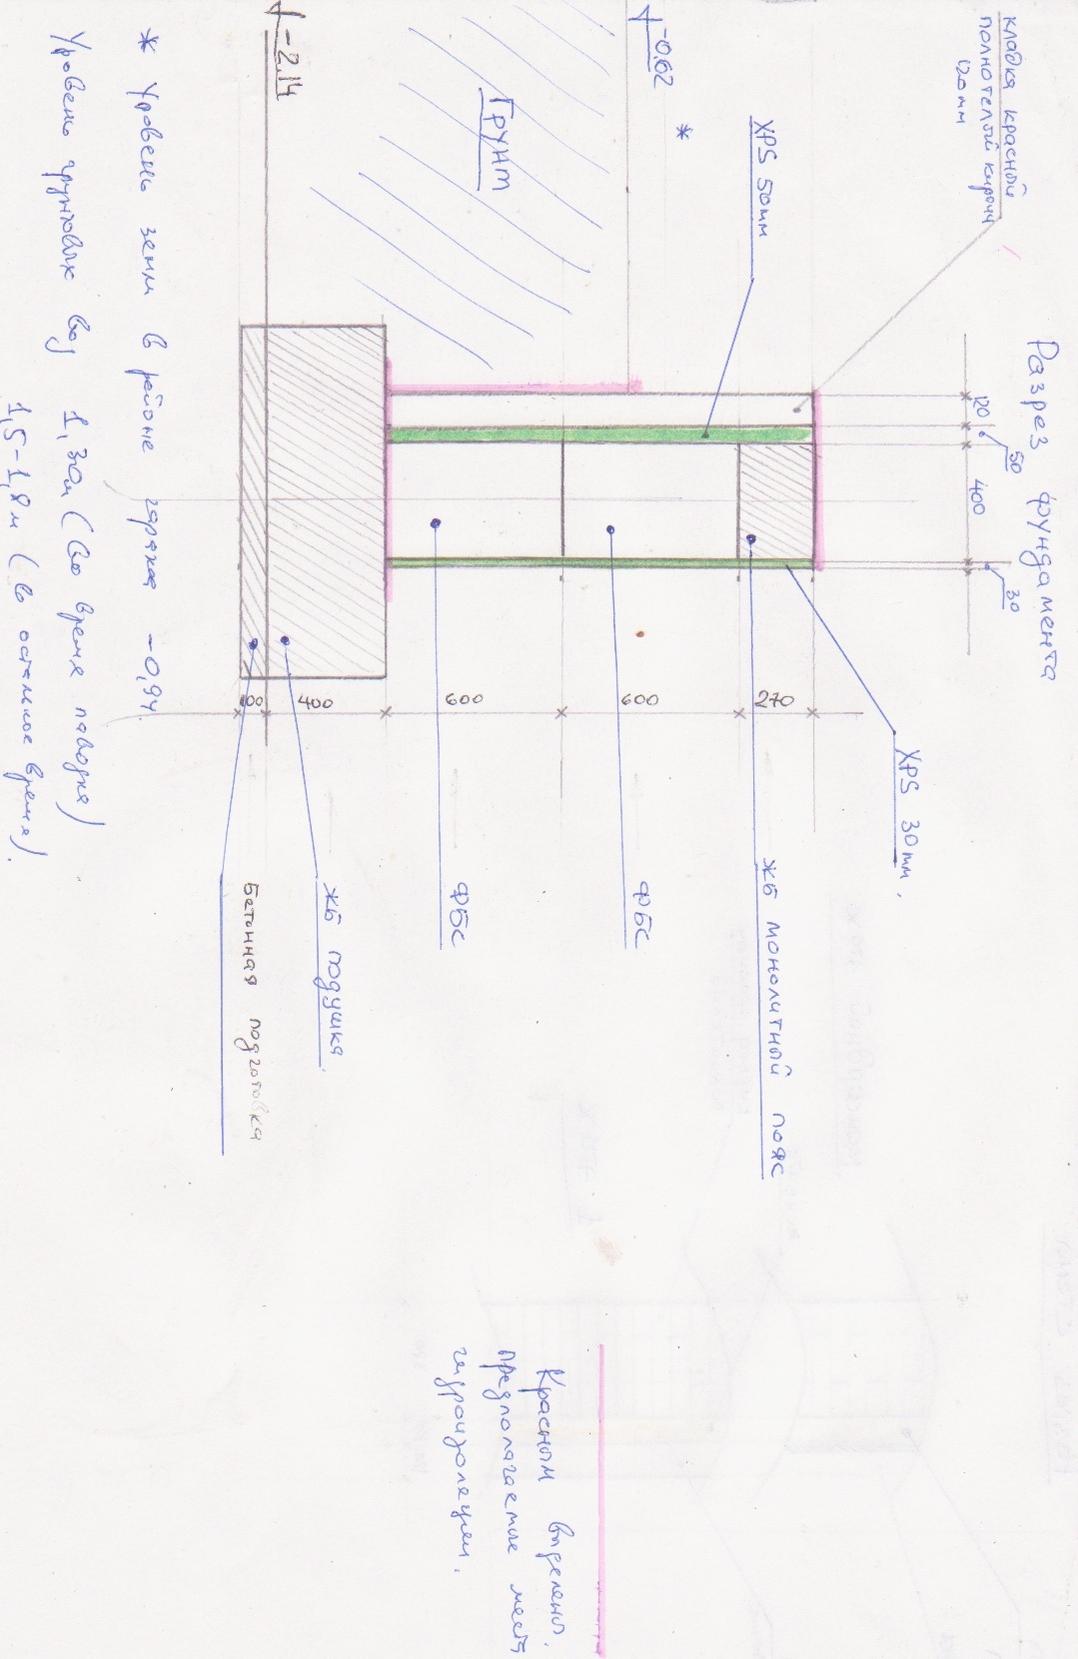 Разрез фундамента
кладка красный
полнотелый кирпич
120мм
120
50
400
30
XPS 50мм
XPS 30мм.
-0,62
*
Грунт
-2,14
270
600
600
400
100
ЖБ монолитный пояс
ФБС
ФБС
ЖБ подушка
Бетонная подготовка
* Уровень земли в районе гаража -0,94.
Уровень грунтовых вод 1,30м (во время паводка)
1,5-1,8м (в остальное время).
Красным выделены.
предполагаемые места
гидроизоляции.